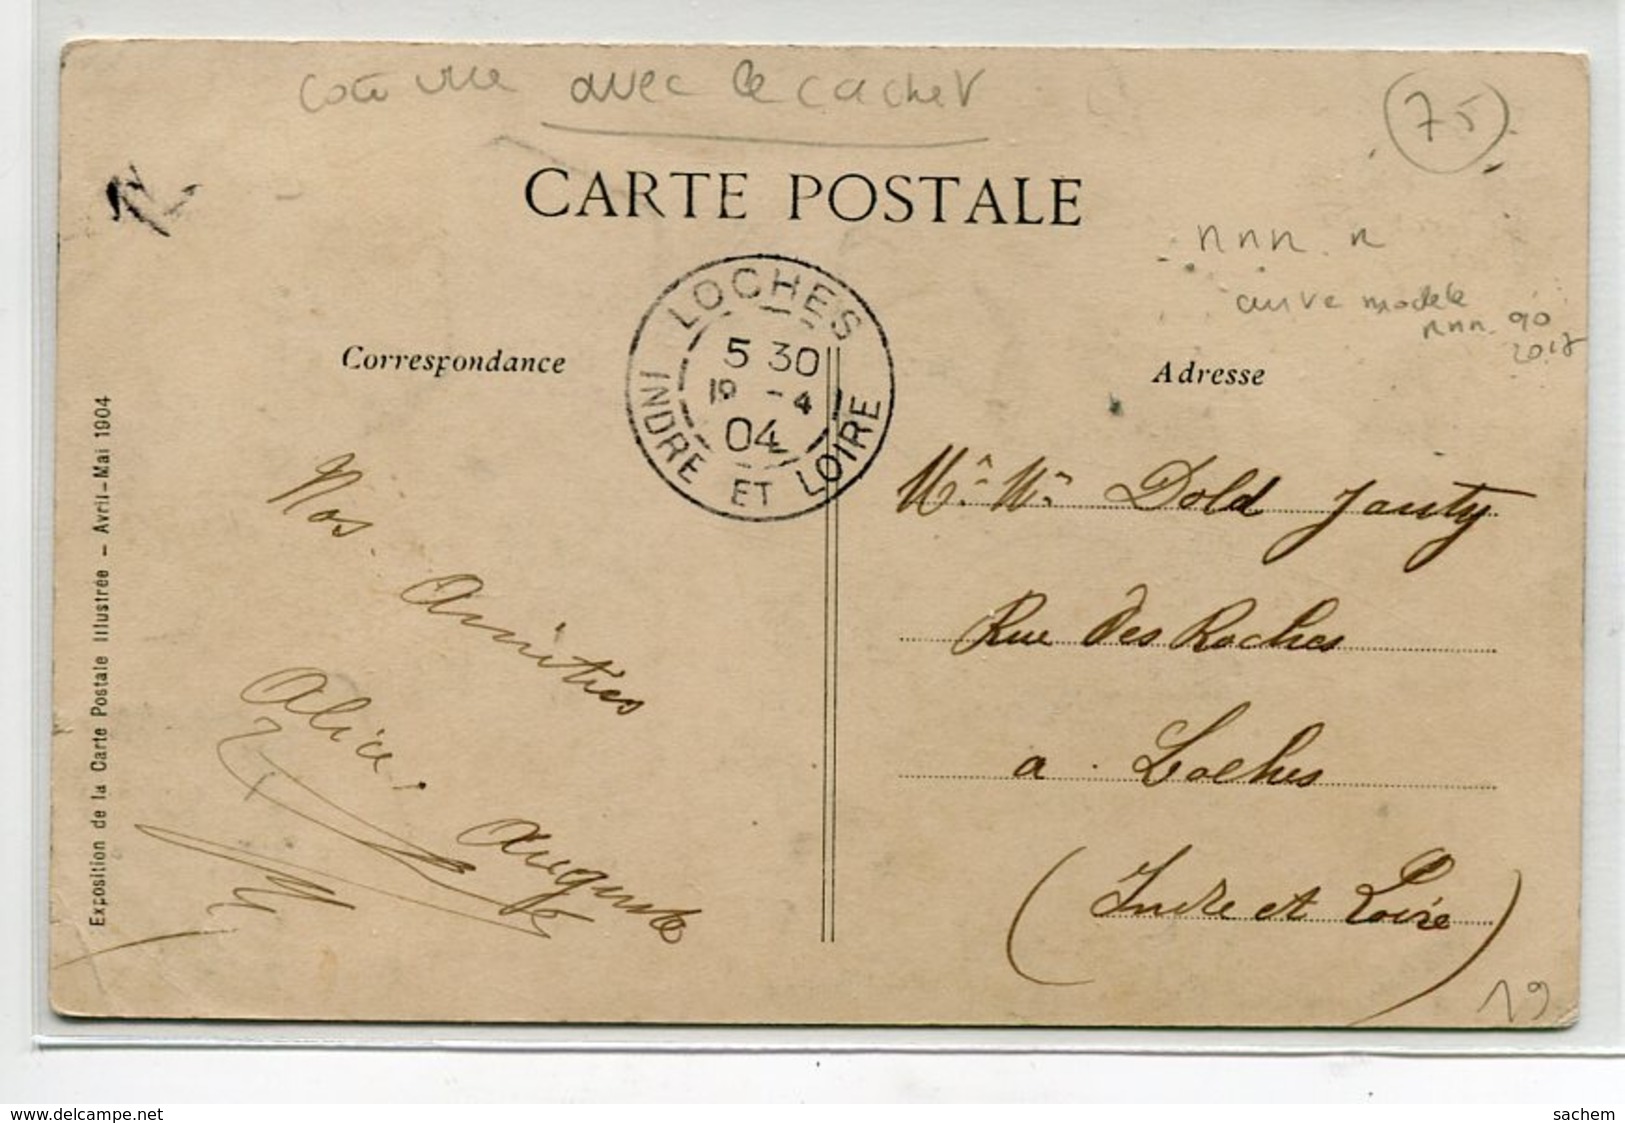 avec le cachet
75
CARTE POSTALE
nnn. n
modele
nnn. 90
2017
LOCHES
5 30
19 - 4
04
INDRE ET LOIRE
Correspondance
Adresse
Exposition de la Carte Postale Illustrée - Avril-Mai 1904
Nos
Amitiés
Alice.
Auguste
Dold Jauty
Rue des Roches
a Loches
(Indre et Loire)
19
www.delcampe.net
sachem